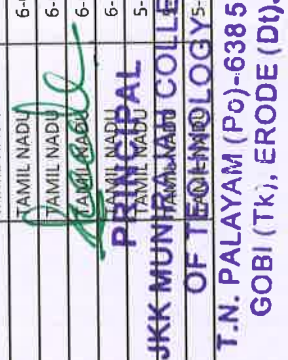 TAMIL NADU 6-
TAMIL NADU 6-
TAMIL NADU 6-
TAMIL NADU 6-
TAMIL NADU 5-
TAMIL NADU
TAMIL NADU 5-
PRINCIPAL
JKK MUNIRAJAH COLLE
OF TECHNOLOGY
T.N. PALAYAM (Po)-6385
GOBI (Tk), ERODE (Dt).